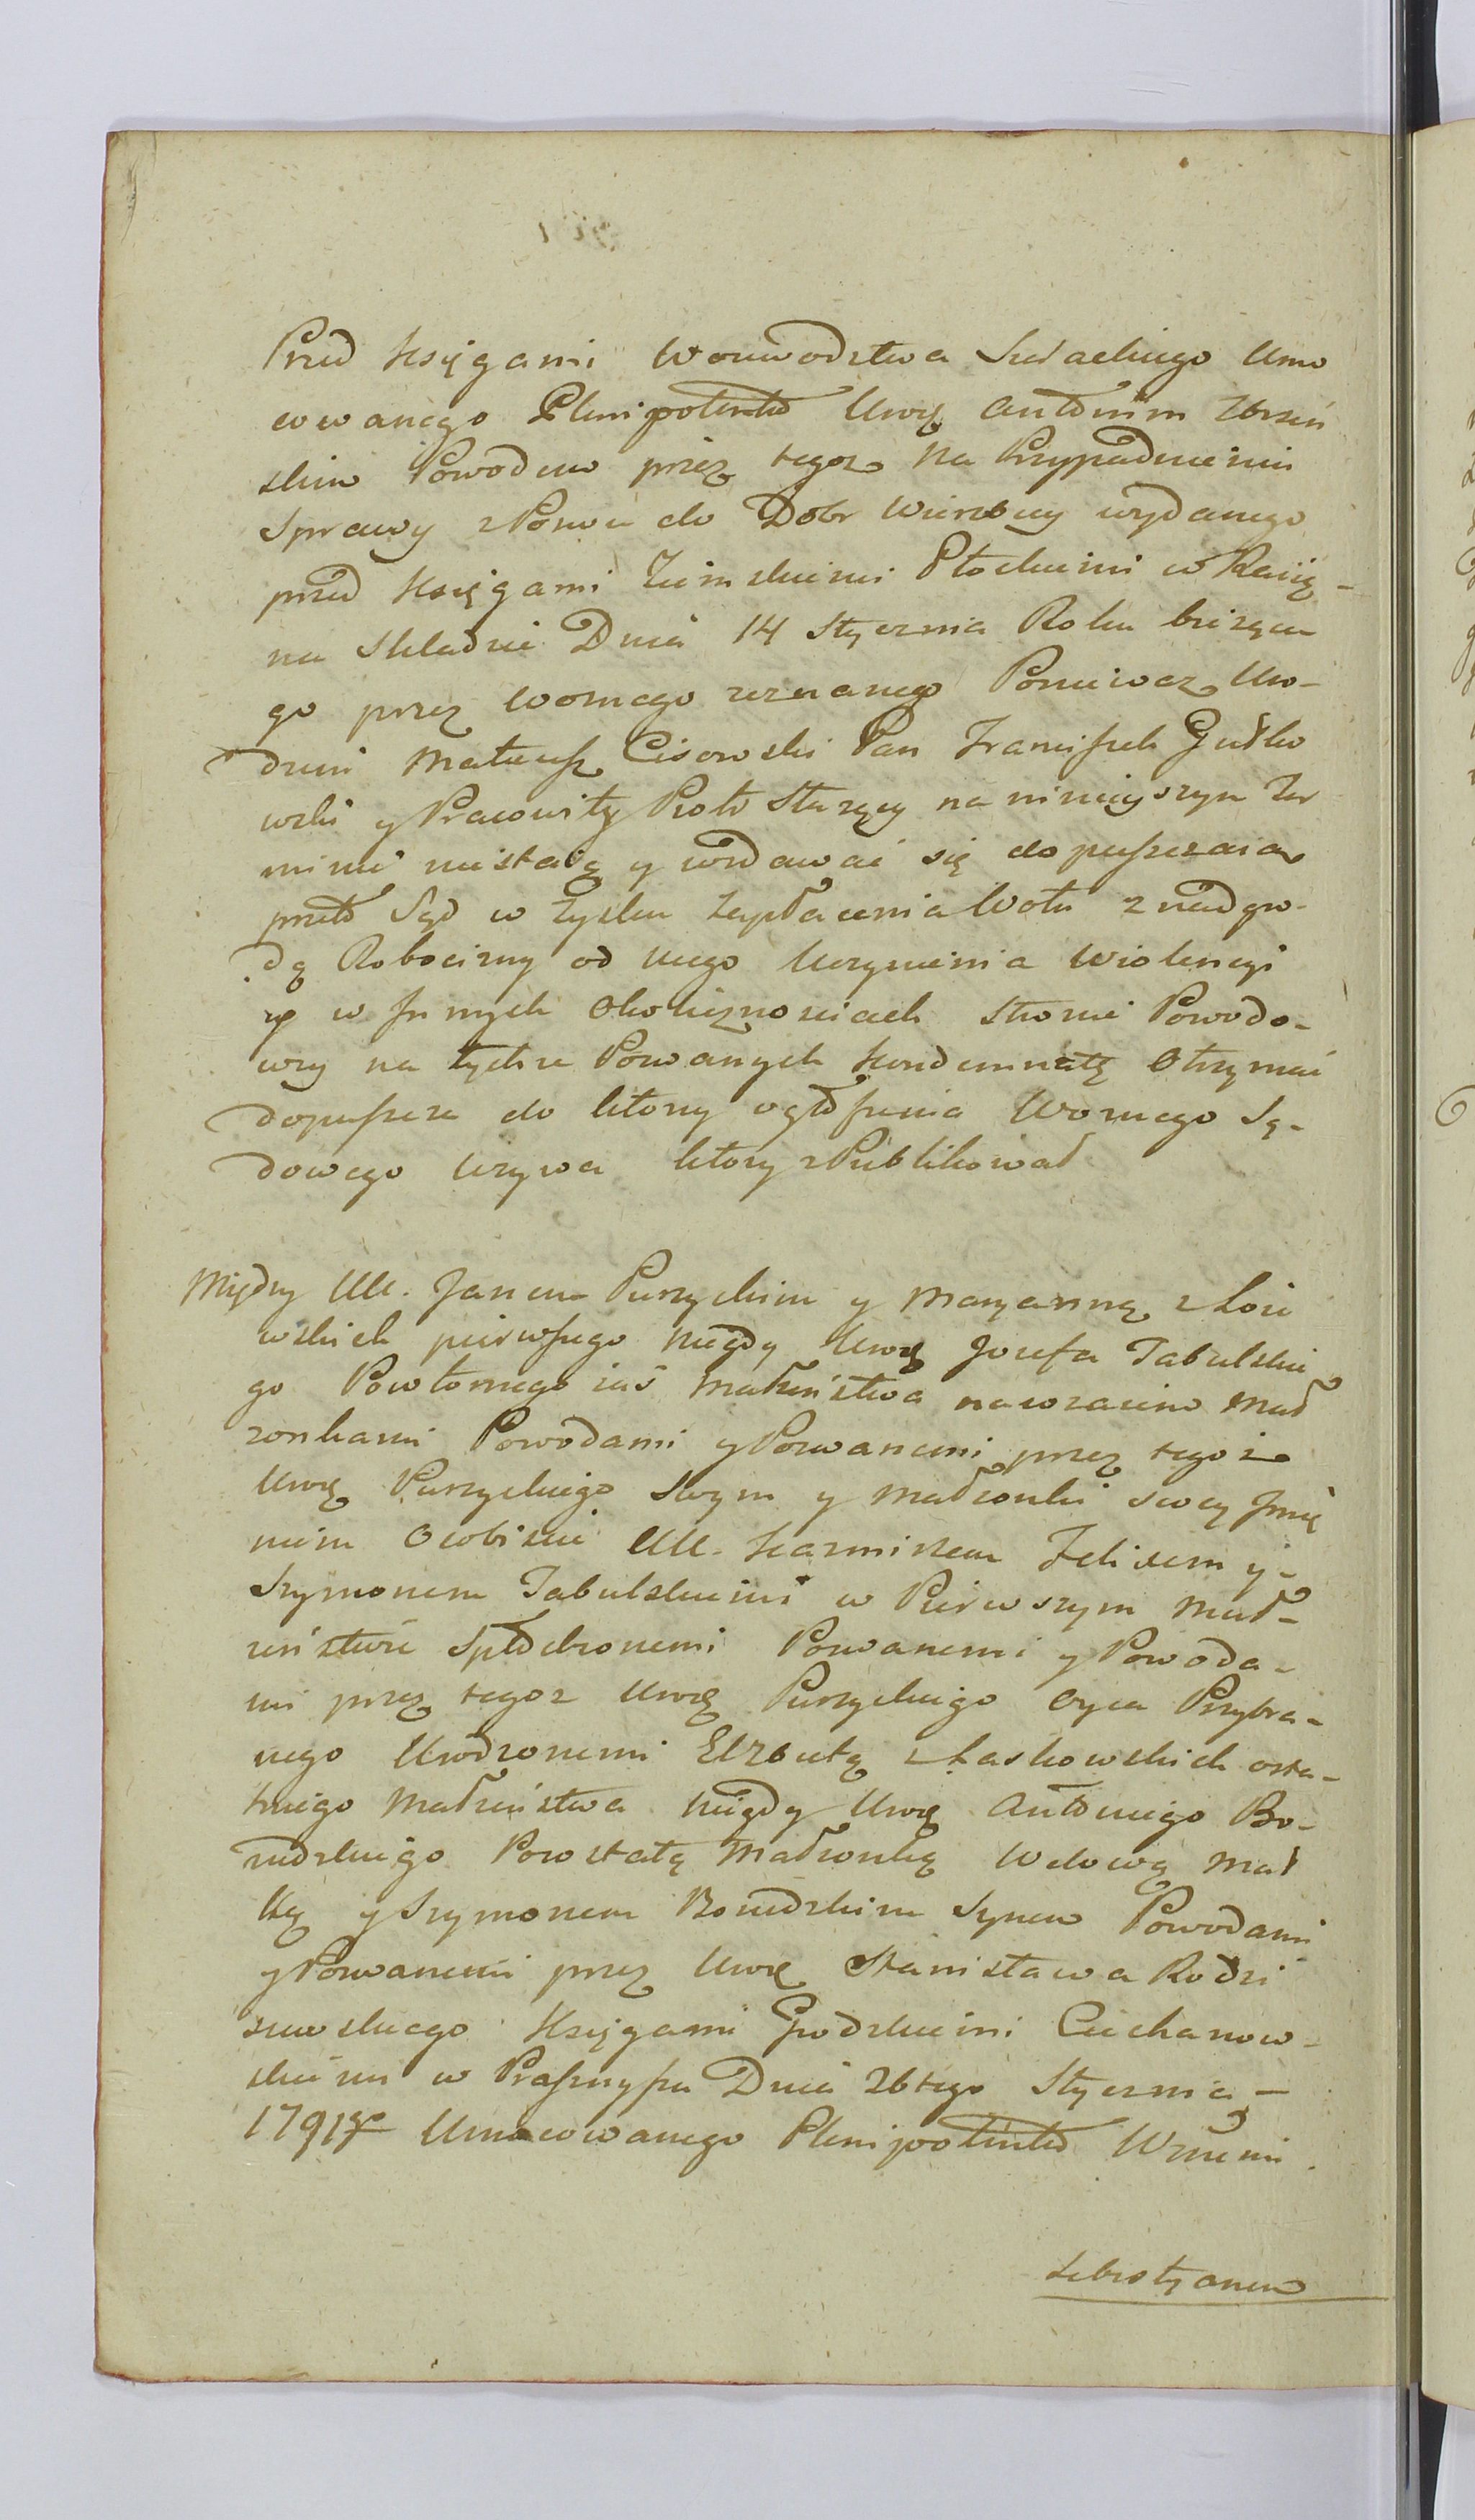 Przed Xsięgami Woiewodztwa Sieradzkiego Umo
cowanego Plenipotenta Urogo Antonim Zbrzeń
skim Powodem przez tegoż na Przypadnieniu
Sprawy z Pozwu do Dobr Wierzbicy wydanego
przed Xsięgami Ziemskiemi Płockiemi w Raciąż
na Składzie Dnia 14 Stycznia Roku bieżące
go przez Woznego zeznanego Ponieważ Uro-
dzeni Mateusz Cisowski Pan Franciszek Gutko
wski y Pracowity Piotr Starzęcy na ninieyszym Ter
minie niestaią y wzdawać się dopuszczaią
przeto Sąd w Zysku Zapłacenia Wołu z nadgro-
dą Robocizny od niego Uczynienia Wiolencyi
y w Innych Okolicznosciach stronie Powodo-
wey na tychże Pozwanych Kondemnatę Otrzymać
dopuszcza do ktorey ogłoszenia Woznego Są-
dowego używa ktory zPublikował
Między UU. Janem Purzyckim y Maryanną z Łosie
wskich pierwszego niegdy Urogo Jozefa Tabulskie
go Powtornego zaś Małżeństwa nawzaiem Mał
żonkami Powodami y Pozwanemi przez tegoż
Urogo Purzyckiego Swym y Małżonki swey Imie
niem Osobiscie UU. Kazmirzem Felixem y
Szymonem Tabulskiemi w Pierwszym Mał-
żenstwie Spłodzonemi Pozwanemi y Powoda-
mi przez tegoż Urogo Purzyckiego Oyca Przybra-
nego Urodzonemi Elżbietą z Łaskowskich osta-
tniego Małżeństwa niegdy Urogo Antoniego Bo-
rudzkiego Pozostałą Małżonką Wdową Mat
ką y Szymonem Borudzkim Synem Powodami
y Pozwanemi przez Urogo Stanisława Rodzi
szewskiego Xsięgami Grodzkiemi Ciechanow-
skiemi w Prasznyszu Dnia 26tego Stycznia
1791go Umocowanego Plenipotenta Wznemi
Sebastyanem